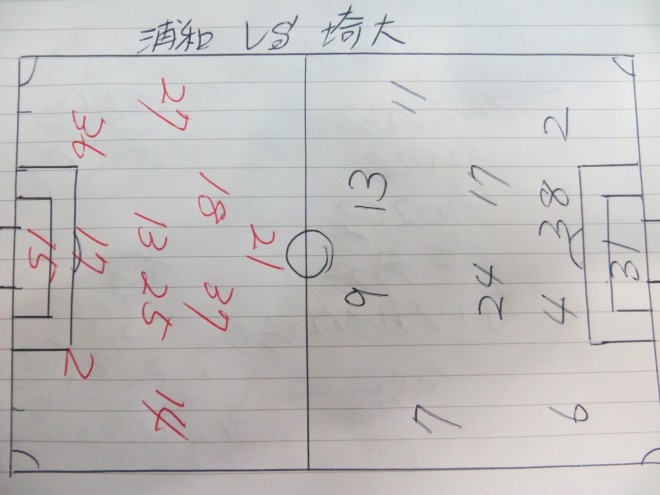 浦和 VS 埼大
27
36
18
13
21
15
17
25
37
2
14
11
2
13
17
38
31
9
24
4
7
6